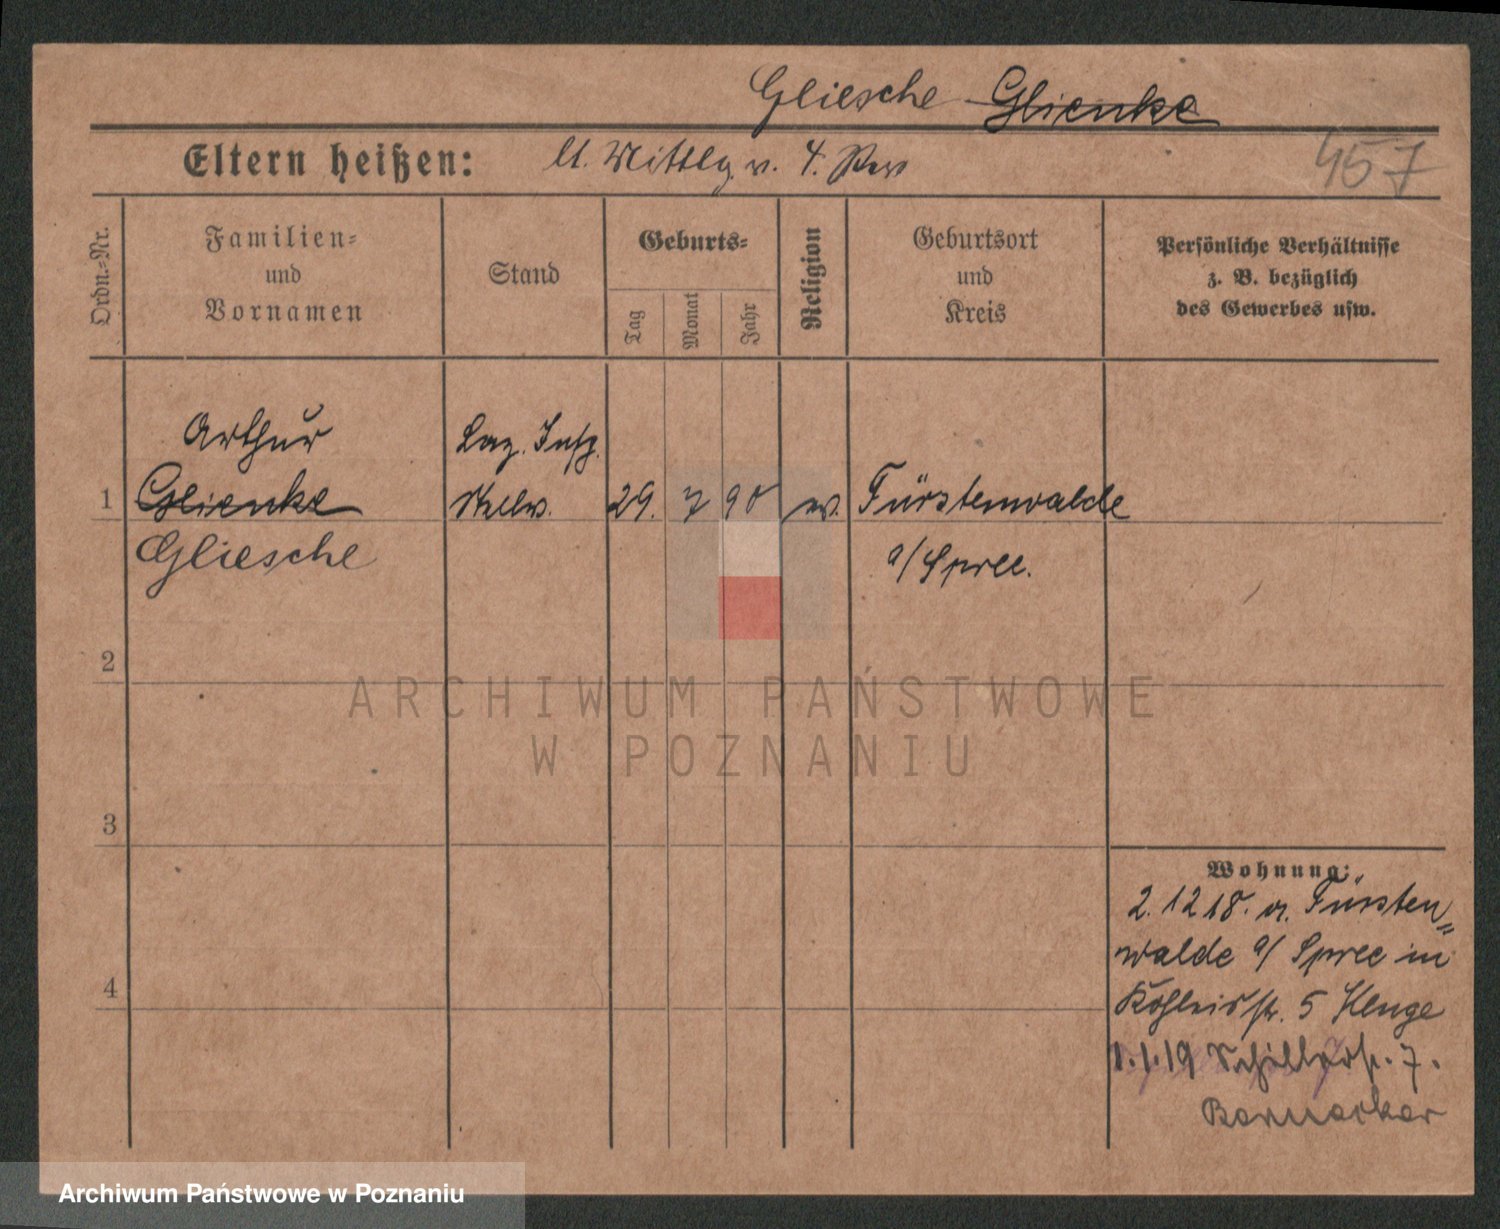 Gliesche Glienke
Eltern heißen: lt. Mittlg v. 4. Rev
457
Ordn.=Nr.
Familien=
und
Vornamen
Stand
Geburts=
Tag
Monat
Jahr
Religion
Geburtsort
und
Kreis
Persönliche Verhältnisse
z. B. bezüglich
des Gewerbes usw.
Arthur Laz. Insp.
1 Glienke Stellv. 29. 7 90 ev. Fürstenwalde
Gliesche a/Spree.
2
ARCHIWUM PAŃSTWOWE
W POZNANIU
3
Wohnung:
2. 12 18. a. Fürsten=
walde a/ Spree in
5
4
1.1.19 Schillerstr. 7.
Archiwum Państwowe w Poznaniu